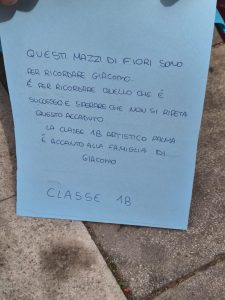 QUESTI MAZZI DI FIORI SONO
PER RICORDARE GIACOMO.
É PER RICORDARE QUELLO CHE É
SUCCESSO E SPERARE CHE NON SI RIPETA
QUESTO ACCADUTO.
LA CLASSE 1B ARTISTICO PARMA
É ACCANTO ALLA FAMIGLIA DI
GIACOMO
CLASSE 1B